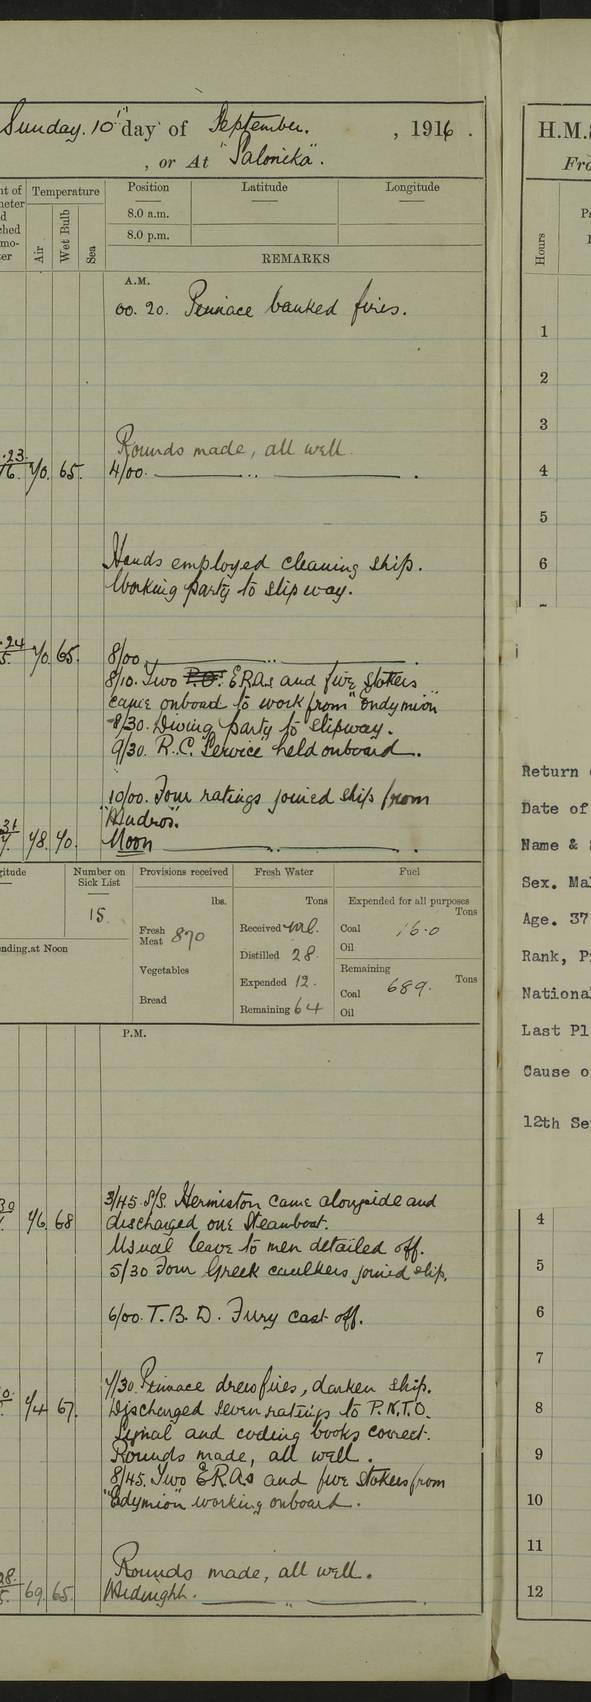 Sunday. 10th day of September. , 1916 .
, or At "Salonika".
Temperature
Air
Wet Bulb
Sea
Position
Latitude
Longitude
8.0 a.m.
8.0 p.m.
REMARKS
A.M.
00. 20. Pinnace banked fires.
Rounds made, all well.
70. 65. 4/00. ———— " ———— .
Hands employed cleaning ship.
Working party to slipway.
70. 65. 8/00 ———— " ———— .
8/10. Two P.O.s ERAs and five stokers
came onboard to work from "Endymion"
8/30. Diving party to slipway.
9/30. R.C. Service held onboard.
10/00. Four ratings joined ship from
"Mudros".
78. 70. Noon ———— " ———— .
Number on
Sick List
15.
Provisions received
lbs.
Fresh
Meat 870
Vegetables
Bread
Fresh Water
Tons
Received nil.
Distilled 28.
Expended 12.
Remaining 64
Fuel
Expended for all purposes
Tons
Coal 16.0
Oil
Remaining
Tons
Coal 689.
Oil
P.M.
3/45. S/S. Hermiston came alongside and
76. 68 discharged one Steamboat.
Usual leave to men detailed off.
5/30 Four Greek caulkers joined ship.
6/00. T.B.D. Fury cast off.
7/30. Pinnace drew fires, darken ship.
74 67. Discharged seven ratings to P.N.T.O.
Signal and coding books correct.
Rounds made, all well.
8/45. Two ERAs and five stokers from
"Edymion" working onboard.
Rounds made, all well.
69. 65. Midnight. ———— " ———— .
H.M.
Hours
1
2
3
4
5
6
Return
Date of
Name &
Sex.
Age. 37
Rank,
Last
Cause
12th
4
5
6
7
8
9
10
11
12